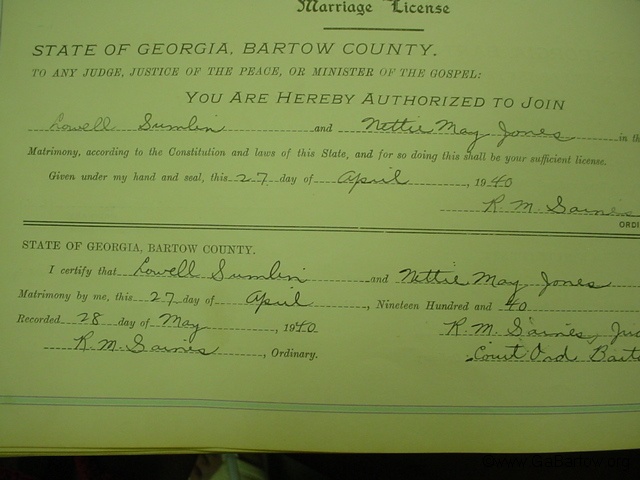 Marriage License
STATE OF GEORGIA, BARTOW COUNTY.
TO ANY JUDGE, JUSTICE OF THE PEACE, OR MINISTER OF THE GOSPEL:
YOU ARE HEREBY AUTHORIZED TO JOIN
Lowell Sumlin and Nettie May Jones in th
Matrimony, according to the Constitution and laws of this State, and for so doing this shall be your sufficient license.
Given under my hand and seal, this 27 day of April, 1940
R. M. Gaines
ORDI
STATE OF GEORGIA, BARTOW COUNTY.
I certify that Lowell Sumlin and Nettie May Jones
Matrimony by me, this 27 day of April, Nineteen Hundred and 40
Recorded 28 day of May, 1940 R. M. Gaines, Jud
R. M. Gaines, Ordinary. Court Ord Barto